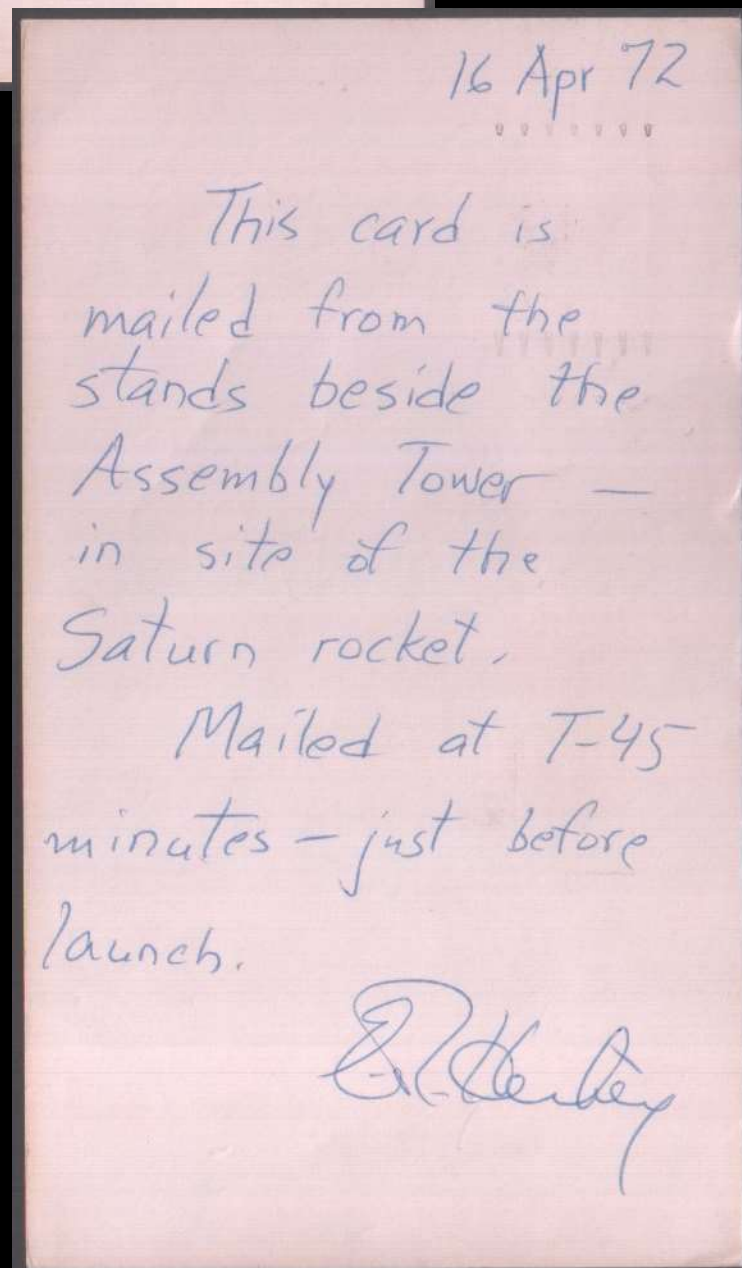 16 Apr 72
This card is
mailed from the
stands beside the
Assembly Tower —
in site of the
Saturn rocket.
Mailed at T-45
minutes — just before
launch.